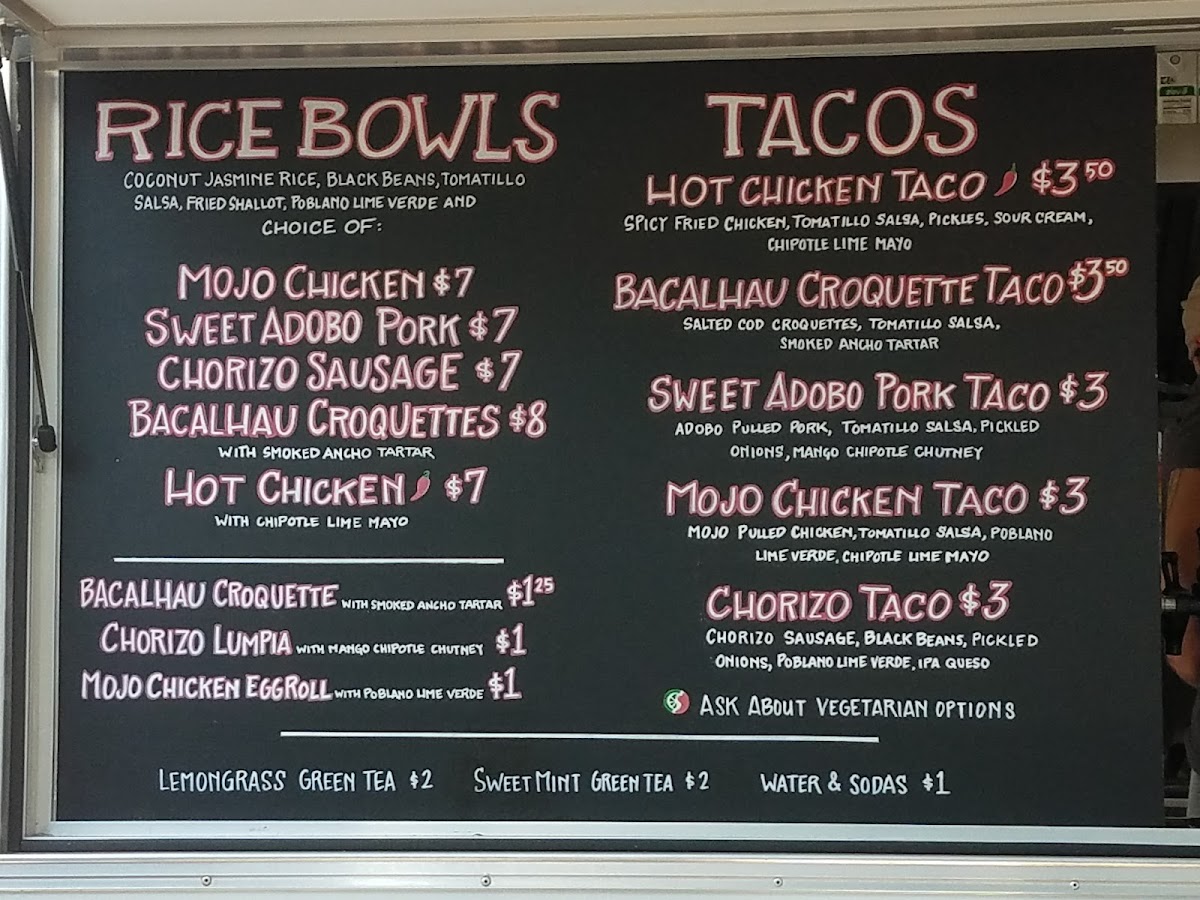 RICE BOWLS
COCONUT JASMINE RICE, BLACK BEANS, TOMATILLO
SALSA, FRIED SHALLOT, POBLANO LIME VERDE AND
CHOICE OF:
MOJO CHICKEN $7
SWEET ADOBO PORK $7
CHORIZO SAUSAGE $7
BACALHAU CROQUETTES $8
WITH SMOKED ANCHO TARTAR
HOT CHICKEN $7
WITH CHIPOTLE LIME MAYO
BACALHAU CROQUETTE WITH SMOKED ANCHO TARTAR $1 25
CHORIZO LUMPIA WITH MANGO CHIPOTLE CHUTNEY $1
MOJO CHICKEN EGGROLL WITH POBLANO LIME VERDE $1
TACOS
HOT CHICKEN TACO $3 50
SPICY FRIED CHICKEN, TOMATILLO SALSA, PICKLES, SOUR CREAM,
CHIPOTLE LIME MAYO
BACALHAU CROQUETTE TACO $3 50
SALTED COD CROQUETTES, TOMATILLO SALSA,
SMOKED ANCHO TARTAR
SWEET ADOBO PORK TACO $3
ADOBO PULLED PORK, TOMATILLO SALSA, PICKLED
ONIONS, MANGO CHIPOTLE CHUTNEY
MOJO CHICKEN TACO $3
MOJO PULLED CHICKEN, TOMATILLO SALSA, POBLANO
LIME VERDE, CHIPOTLE LIME MAYO
CHORIZO TACO $3
CHORIZO SAUSAGE, BLACK BEANS, PICKLED
ONIONS, POBLANO LIME VERDE, IPA QUESO
ASK ABOUT VEGETARIAN OPTIONS
LEMONGRASS GREEN TEA $2 SWEET MINT GREEN TEA $2 WATER & SODAS $1